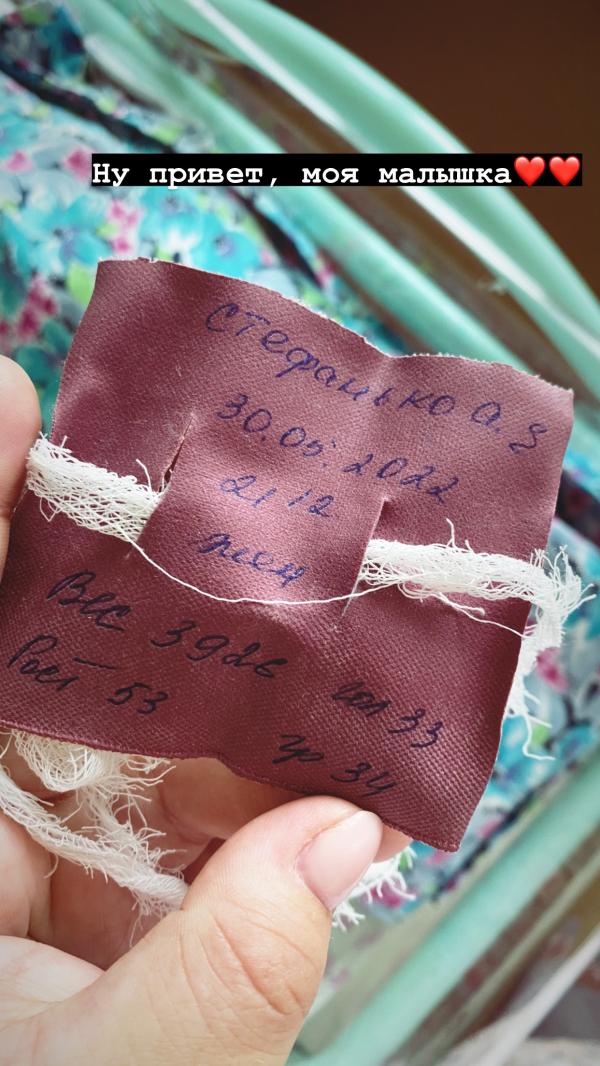 Ну привет, моя малышка❤️❤️
Стефанько А. З
30.05.2022
21 12
Вес 3926 гол 33
Рост 53 гр 34